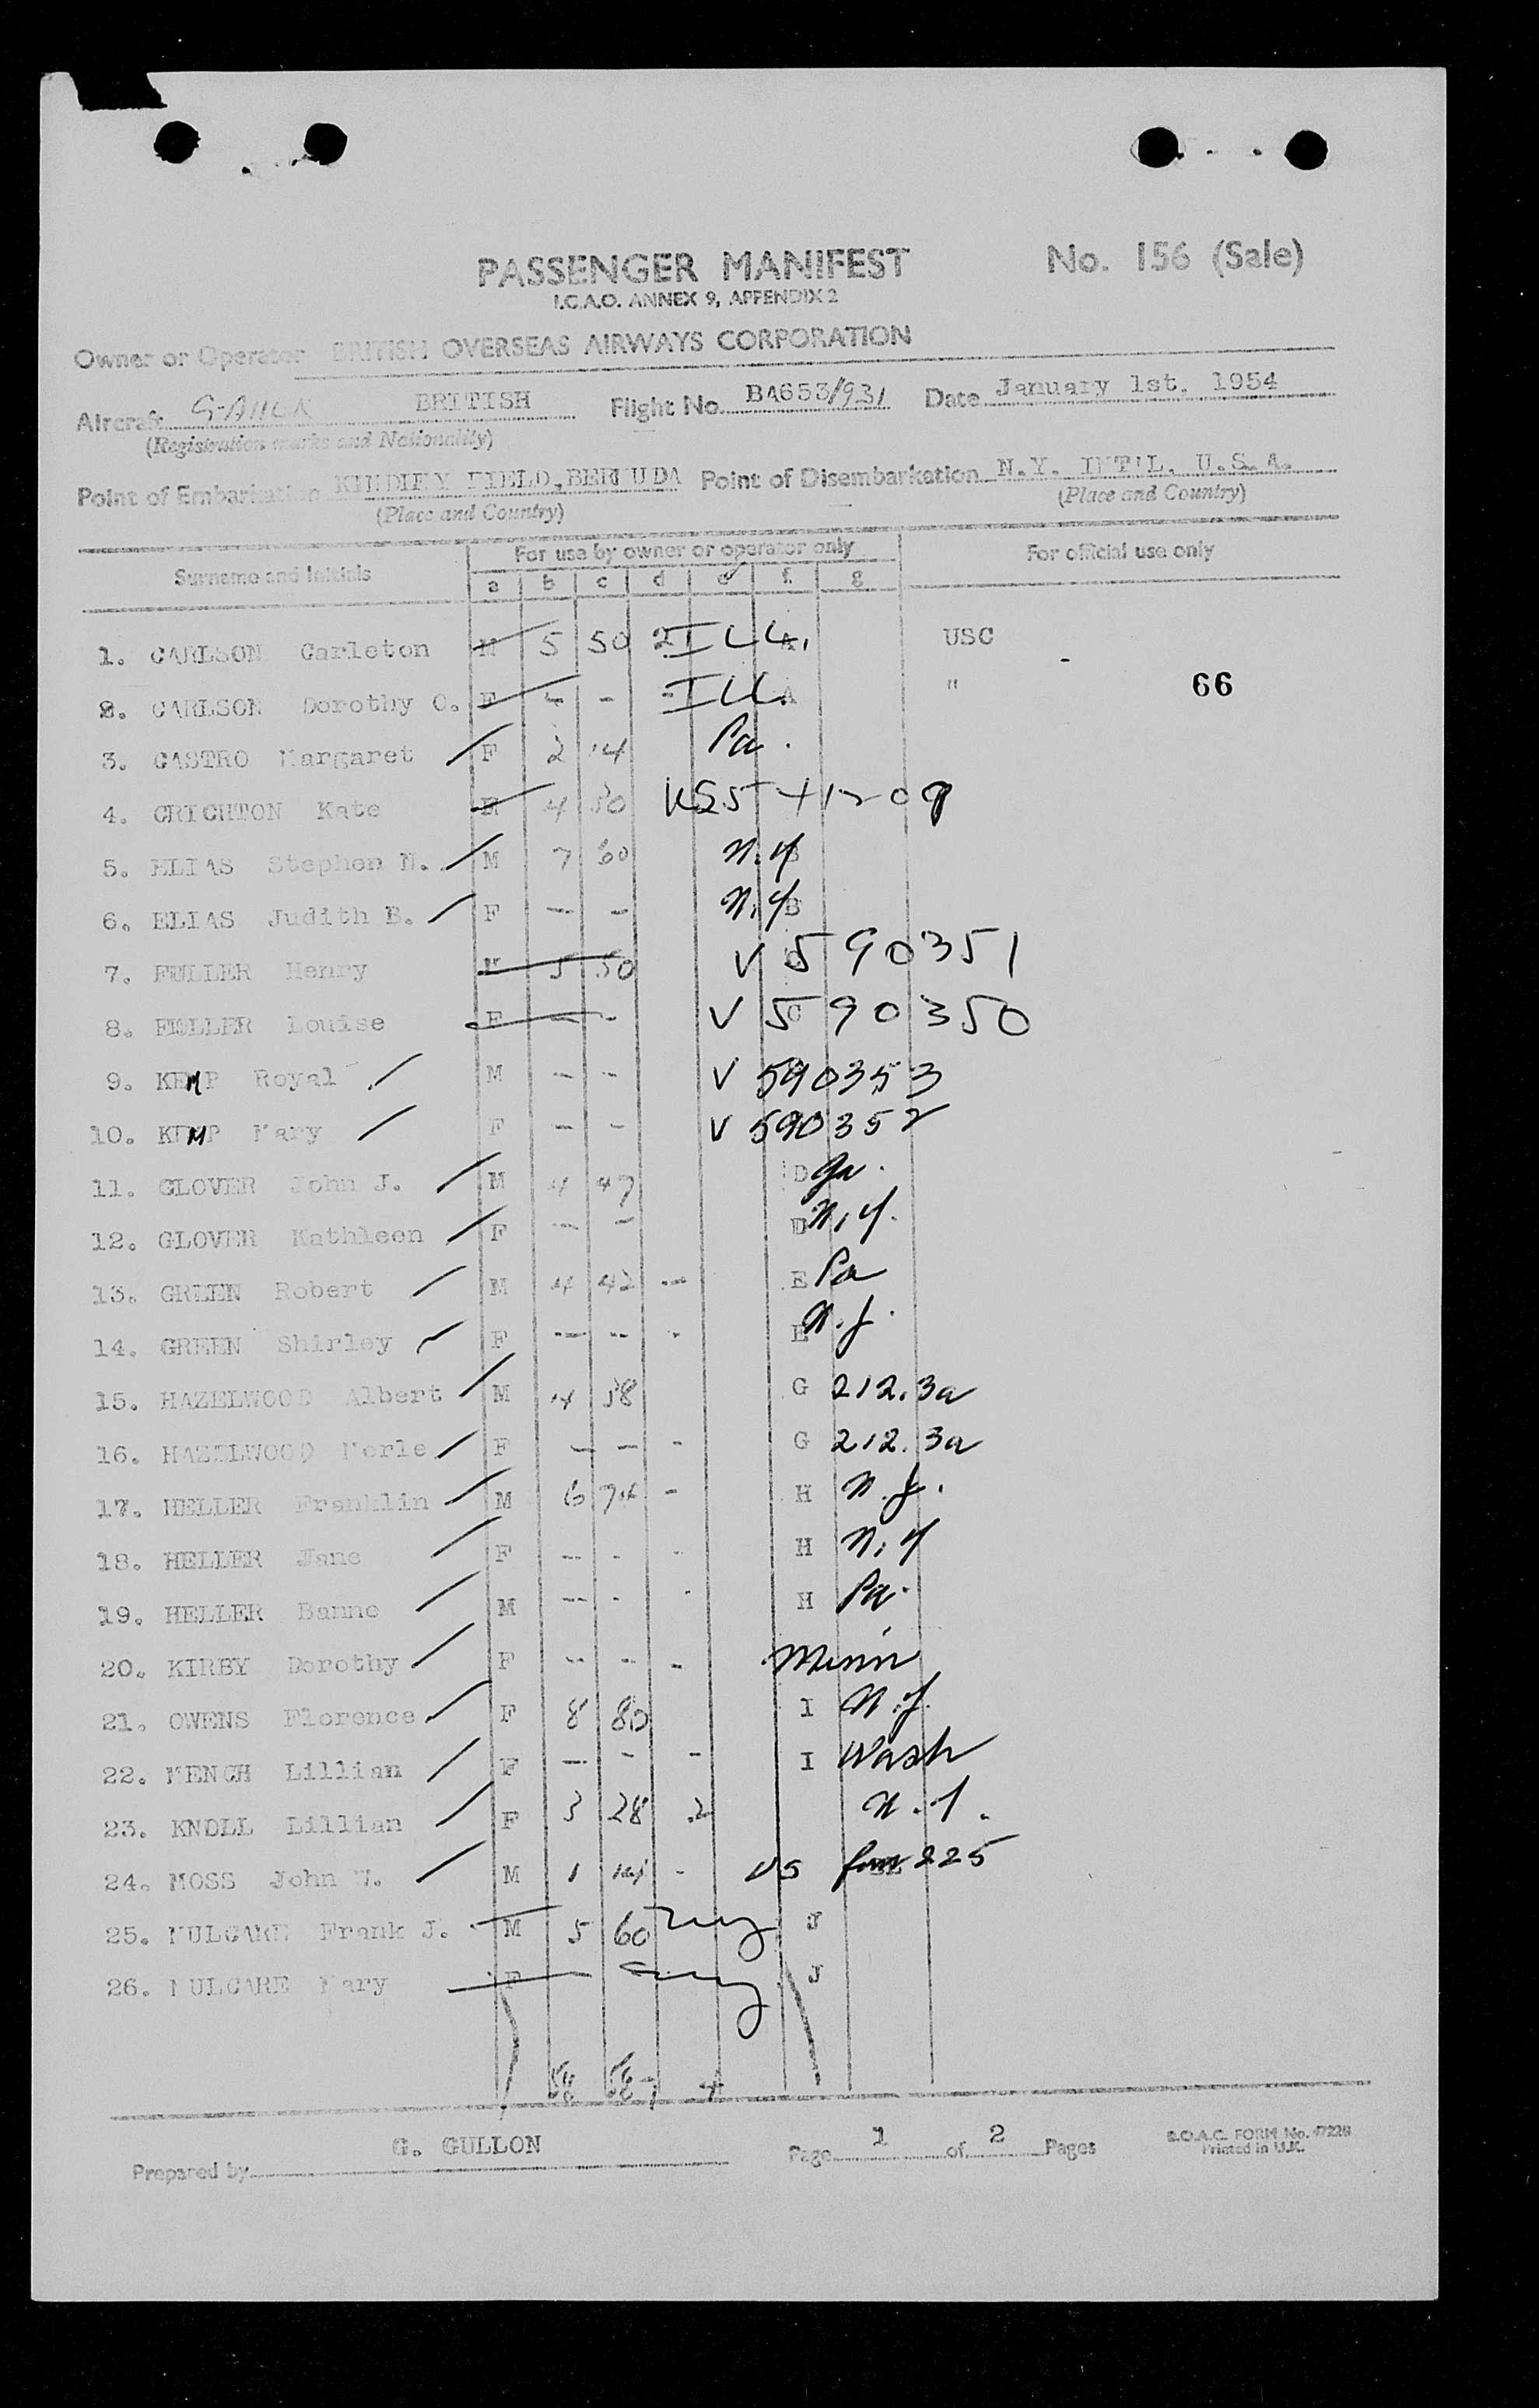 PASSENGER MANIFEST No. 156 (Sale)
I.C.A.O. ANNEX 9, APPENDIX 2
Owner or Operator BRITISH OVERSEAS AIRWAYS CORPORATION
Aircraft BRITISH Flight No. BA653/931 Date January 1st, 1954
(Registration marks and Nationality)
Point of Embarkation KINDLEY FIELD, BERMUDA Point of Disembarkation N.Y. INT'L, U.S.A.
(Place and Country) (Place and Country)
Surname and Initials For use by owner or operator only For official use only
a b c d e f g
1. CARLSON Carleton M 5 50 2 ILL. A USC
2. CARLSON Dorothy O. F - - - ILL. A "
66
3. CASTRO Margaret F 2 14 Pa.
4. CRICHTON Kate F 4 50
5. ELIAS Stephen N. M 7 60 N.Y B
6. ELIAS Judith B. F - - N.Y B
7. FULLER Henry M 5 50 V 590351
8. FULLER Louise F - - C V 590350
9. KEMP Royal M - - V 590353
10. KEMP Mary F - - V 590352
11. GLOVER John J. M 4 47 D
12. GLOVER Kathleen F - - D N.Y.
13. GREEN Robert M 4 42 - E Pa
14. GREEN Shirley F - - - E N.J.
15. HAZELWOOD Albert M 4 38 G 212.3a
16. HAZELWOOD Merle F - - - G 212.3a
17. HELLER Franklin M 6 74 - H N.J.
18. HELLER Jane F - - - H N.Y
19. HELLER Banne M - - - H Pa.
20. KIRBY Dorothy F - - - Minn
21. OWENS Florence F 8 80 I N.J.
22. MENCH Lillian F - - - I Wash
23. KNOLL Lillian F 3 28 2
24. MOSS John W. M 1 14 - US 225
25. MULCARE Frank J. M 5 60 J
26. MULCARE Mary F J
Prepared by G. GULLON Page 1 of 2 Pages B.O.A.C. FORM No.
Printed in U.K.